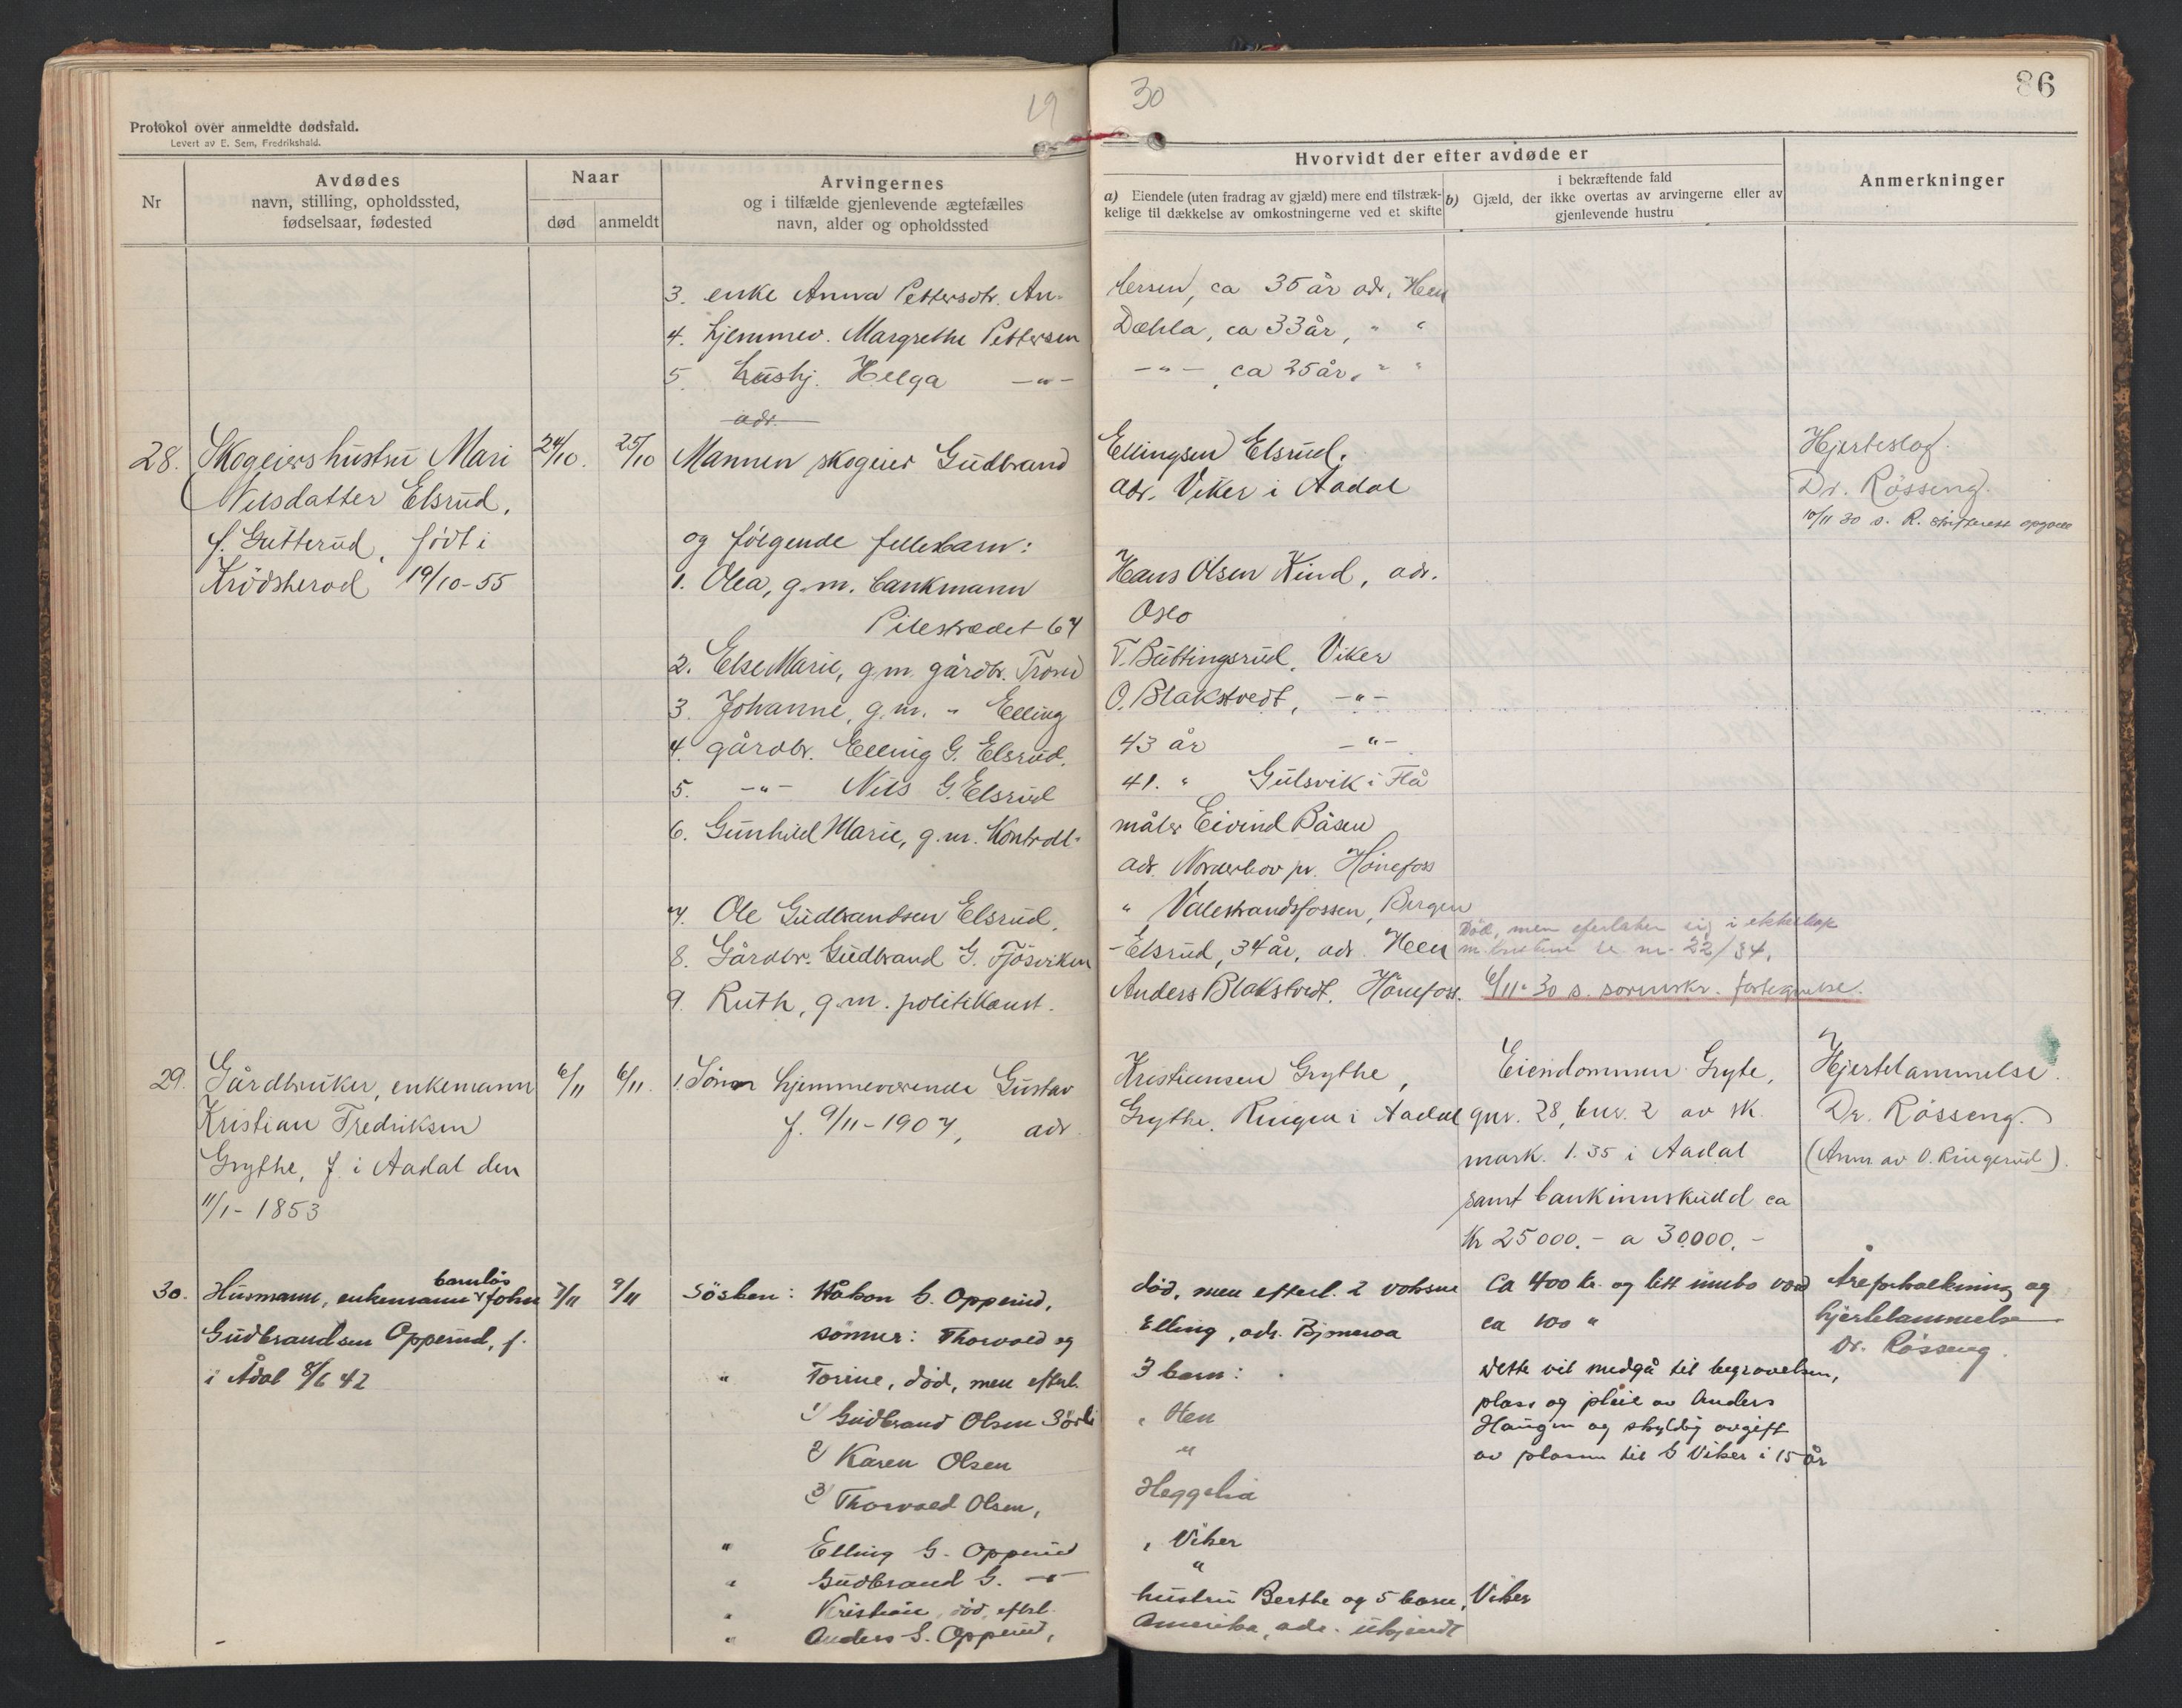 19
30
86
Protokol over anmeldte dødsfald.
Levert av E. Sem, Fredrikshald.
Nr
Avdødes
navn, stilling, opholdssted,
fødselsaar, fødested
Naar
død
anmeldt
Arvingernes
og i tilfælde gjenlevende ægtefælles
navn, alder og opholdssted
Hvorvidt der efter avdøde er
a) Eiendele (uten fradrag av gjæld) mere end tilstræk-
kelige til dækkelse av omkostningerne ved et skifte
i bekræftende fald
b) Gjæld, der ikke overtas av arvingerne eller av
gjenlevende hustru
Anmerkninger
3. enke Anna Pettersdtr. An- dersen, ca 35 år adr. Heen
4. hjemmev. Margrethe Pettersen Dæhla, ca 33 år, " "
5. hushj. Helga -"- -"-, ca 25 år, " "
adr.
28. Skogeiershustru Mari 24/10. 25/10 Mannen skogeier Gudbrand Ellingsen Elsrud. Hjerteslag.
Nilsdatter Elsrud, adr. Viker i Aadal Dr. Rösseng.
10/11 30 s. R. skifterett
f. Gutterud, født i og følgende fellesbarn:
Krödsherad 19/10-55 1. Olea, g.m. bankmann Hans Olsen Kind, adr.
Pilestrædet 67 Oslo
2. Else Marie, g.m. gårdbr. Trond T. Buttingsrud, Viker
3. Johanne, g.m. " Elling O. Blakstvedt, -"-
4. gårdbr. Elling G. Elsrud, 43 år -"-
5. -"- Nils G. Elsrud 41. " Gulsvik i Flå
6. Gunhild Marie, g.m. Kontroll- måler Eivind Båsen
adr. Norderhov pr. Hönefoss
7. Ole Gudbrandsen Elsrud, " Valestrandsfossen, Bergen
8. Gårdbr. Gudbrand G. Fjösviken -Elsrud, 34 år, adr. Heen
Död, men efterlater sig i ekteskap
m. hustru se nr. 22/34.
9. Ruth, g.m. politikonst. Anders Blakstvedt, Hönefoss. 6/11-30 s. sorenskr. fortegnelse.
29. Gårdbruker, enkemann 6/11 6/11. 1. Sönn hjemmeværende Gustav Kristiansen Grythe, Eiendommen Gryte, Hjertelammelse.
Kristian Fredriksen f. 9/11-1907, adr. Grythe, Ringen i Aadal gnr. 28, bnr. 2 av sk. Dr. Rösseng.
Grythe, f. i Aadal den mark. 1.35 i Aadal (Anm. av O. Ringerud).
11/1-1853 samt bankinnskudd ca
Kr 25000.- a 30000.-
30. Husmann, enkemann barnløs John 7/11 9/11 Søsken: Håkon G. Opperud, död, men efterl. 2 voksne Ca 400 kr. og litt innbo værd Åreforkalkning og
Gudbrandsen Opperud, f. sønner: Thorvald og Elling, adr. Bjoneroa ca 100 " hjertelammelse
Dr. Rösseng.
i Ådal 8/6 42 " Torine, död, men efterl. 3 barn: Dette vil medgå til begravelsen,
1) Gudbrand Olsen Sörli , Hen plass og pleie av Anders
Haugen og skyldig avgift
2) Karen Olsen " av plassen til G Viker i 15 år
3) Thorvald Olsen, Heggelia
" Elling G. Opperud , Viker
" Gudbrand G. -"- "
" Kristian, död, efterl. hustru Berthe og 5 barn, Viker
" Anders G. Opperud, Amerika, adr. ukjendt